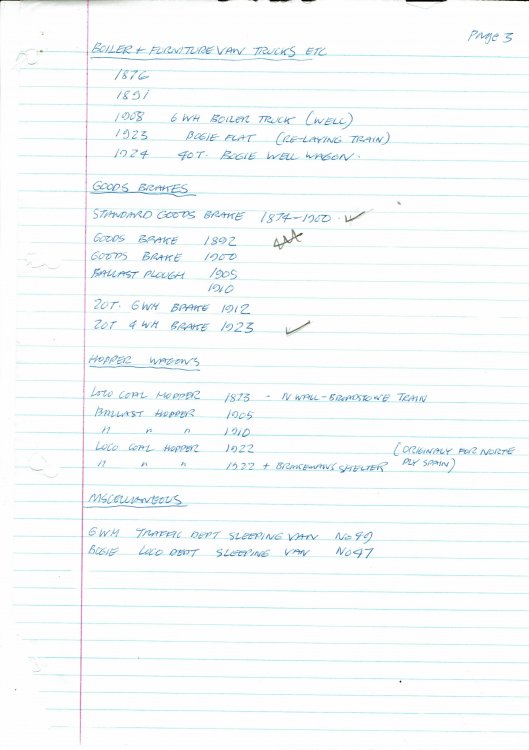 PAGE 3
BOILER + FURNITURE VAN TRUCKS ETC
1876
1891
1908 6 WH BOILER TRUCK (WELL)
1923 BOGIE FLAT (RE-LAYING TRAIN)
1924 40T. BOGIE WELL WAGON.
GOODS BRAKES
STANDARD GOODS BRAKE 1874-1900 ✓
GOODS BRAKE 1892
GOODS BRAKE 1900
BALLAST PLOUGH 1905
1910
20T. 6WH BRAKE 1912
20T 4 WH BRAKE 1923 ✓
HOPPER WAGONS
LOCO COAL HOPPER 1873 - N WALL-BROADSTONE TRAIN
BALLAST HOPPER 1905
" " " 1910
LOCO COAL HOPPER 1922 (ORIGINALY FOR NORTE
" " " 1922 + BRAKEMANS SHELTER RLY SPAIN)
MISCELLANEOUS
6WH TRAFFIC DEPT SLEEPING VAN No 99
BOGIE LOCO DEPT SLEEPING VAN No 47